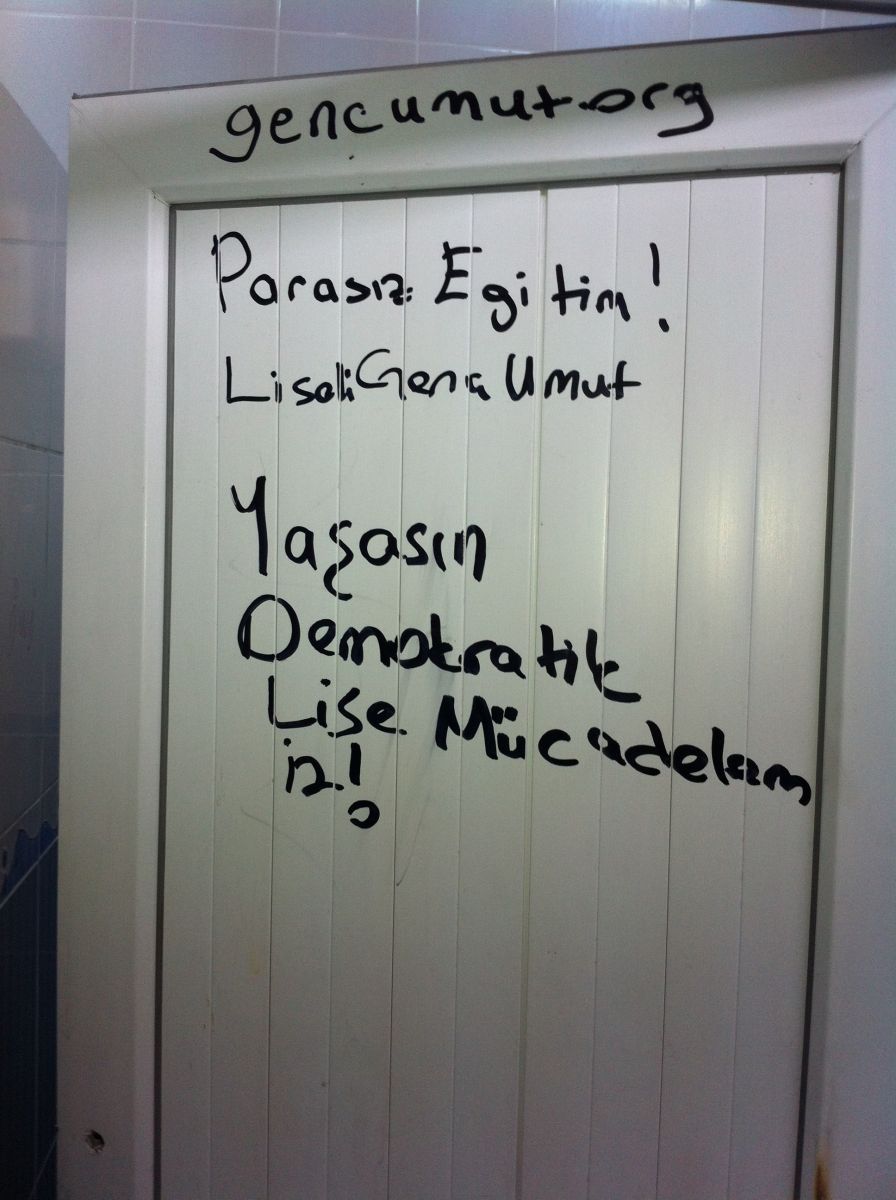 gencumut.org
Parasız Egitim!
Liseli Genç Umut
Yaşasın
Demokratik
Lise Mücadelem
iz!